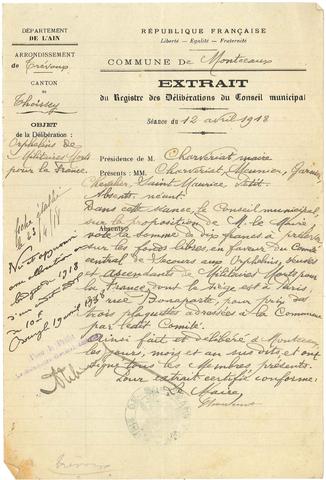 DÉPARTEMENT
DE L'AIN
ARRONDISSEMENT
de Trévoux
CANTON
de
Thoissey
OBJET
de la Délibération :
Orphelins de
Militaires Morts
pour la France.
RÉPUBLIQUE FRANÇAISE
Liberté — Égalité — Fraternité
COMMUNE DE Montceaux
EXTRAIT
du Registre des Délibérations du Conseil municipal
Séance du 12 avril 1918
Présidence de M. Charvériat maire
Présents : MM. Charvériat, Meunier,
Chevalier, Saint-Maurice, Petit.
Absents : néant.
Dans cette séance, le Conseil municipal,
sur la proposition de M. le Maire
vote la somme de dix francs à prélever
sur les fonds libres, en faveur du Comité
central de Secours aux Orphelins, veuves
et ascendants de Militaires Morts pour
la France dont le siège est à Paris,
rue Bonaparte, pour prix de
trois plaquettes adressées à la Commune
par ledit Comité.
Ainsi fait et délibéré à Montceaux
les jours, mois et an susdits et ont
signé tous les Membres présents.
Pour extrait certifié conforme :
Le Maire,
fiche établie
le 23/4/18
Vu et approuvé
1918
10f
19 avril 1918
Trévoux